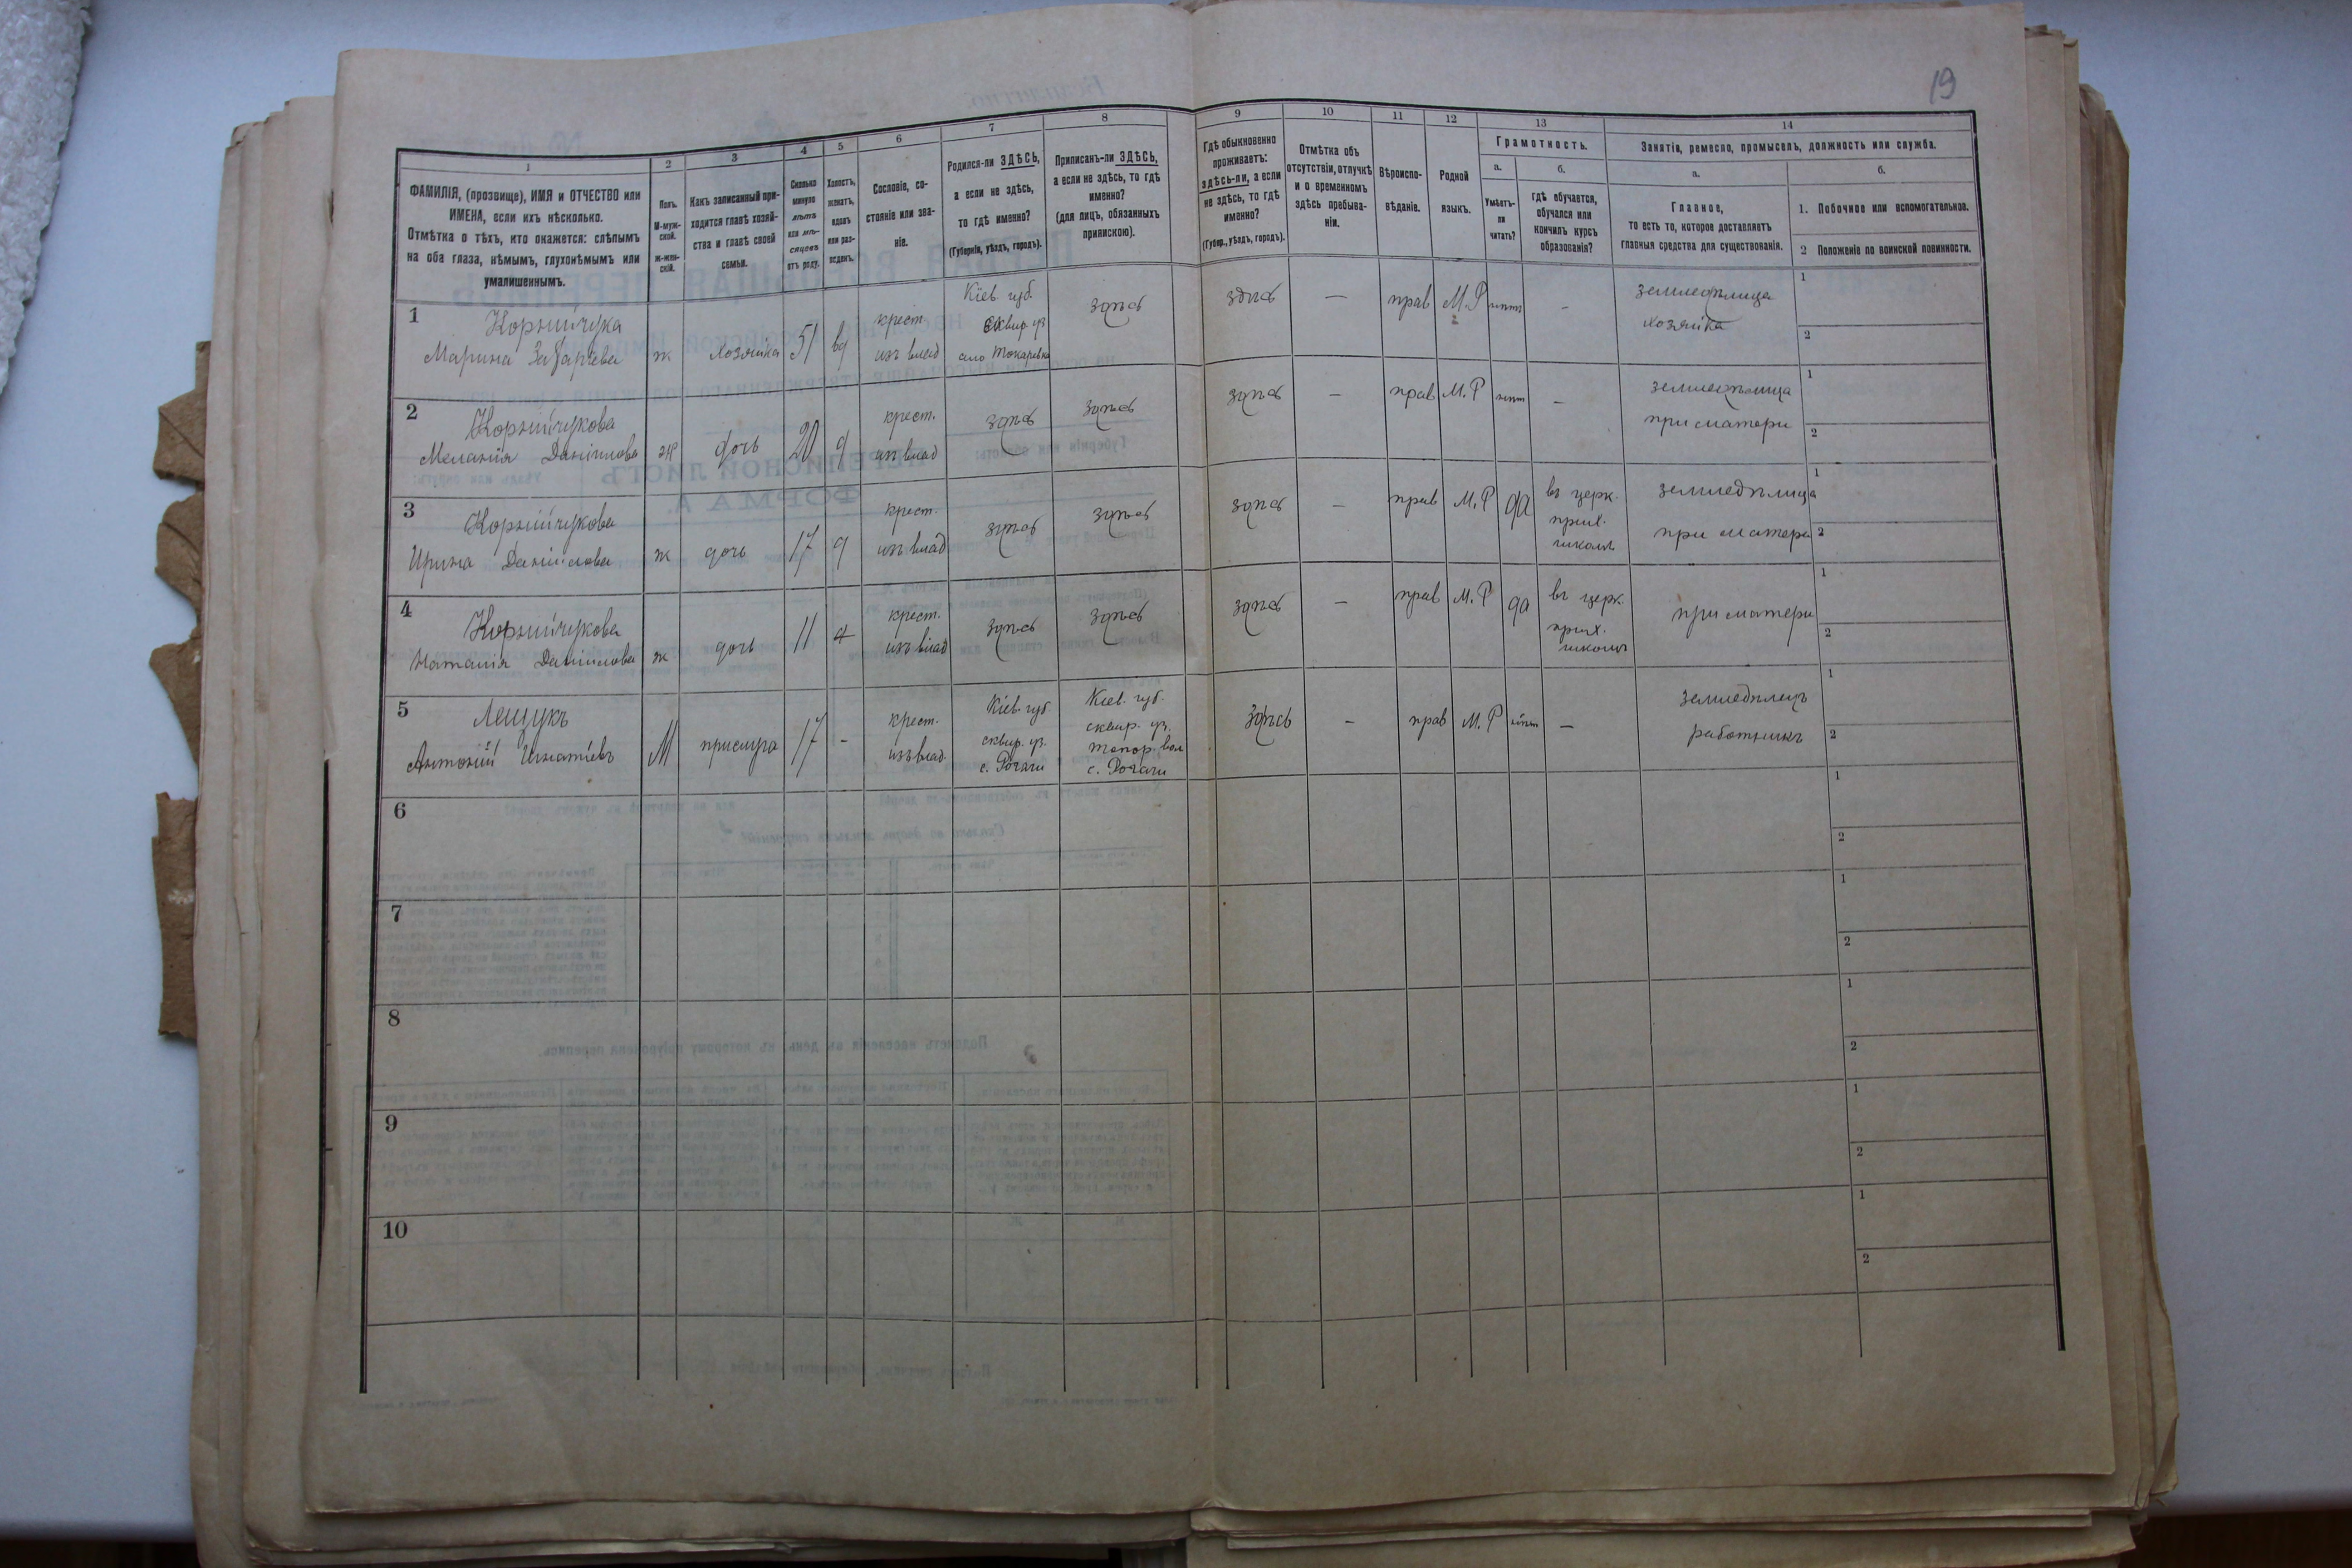 19
1
ФАМИЛІЯ, (прозвище), ИМЯ и ОТЧЕСТВО или
ИМЕНА, если ихъ нѣсколько.
Отмѣтка о тѣхъ, кто окажется: слѣпымъ
на оба глаза, нѣмымъ, глухонѣмымъ или
умалишеннымъ.
2
Полъ.
М-муж-
ской.
ж-жен-
скій.
3
Какъ записанный при-
ходится главѣ хозяй-
ства и главѣ своей
семьи.
4
Сколько
минуло
лѣтъ
или мѣ-
сяцевъ
отъ роду.
5
Холостъ,
женатъ,
вдовъ
или раз-
веденъ.
6
Сословіе, со-
стояніе или зва-
ніе.
7
Родился-ли ЗДѢСЬ,
а если не здѣсь,
то гдѣ именно?
(Губернія, уѣздъ, городъ).
8
Приписанъ-ли ЗДѢСЬ,
а если не здѣсь, то гдѣ
именно?
(для лицъ, обязанныхъ
припискою).
9
Гдѣ обыкновенно
проживаетъ:
здѣсь-ли, а если
не здѣсь, то гдѣ
именно?
(Губер., уѣздъ, городъ).
10
Отмѣтка объ
отсутствіи, отлучкѣ
и о временномъ
здѣсь пребыва-
ніи.
11
Вѣроиспо-
вѣданіе.
12
Родной
языкъ.
13
Грамотность.
а.
Умѣетъ-
ли
читать?
б.
гдѣ обучается,
обучался или
кончилъ курсъ
образованія?
14
Занятія, ремесло, промыселъ, должность или служба.
а.
Главное,
то есть то, которое доставляетъ
главныя средства для существованія.
б.
1. Побочное или вспомогательное.
2 Положеніе по воинской повинности.
1
Корнійчука
Марина Захаріева
ж
хозяйка
51
вд
крест.
изъ влад
Кіев. губ.
сквир. уз
село Токаревка
здѣсь
здѣсь
—
прав
М.Р
нѣт
—
земледѣлица
хозяйка
1
2
2
Корнійчукова
Меланія Даніилова
ж
дочь
20
д
крест.
изъ влад
здѣсь
здѣсь
здѣсь
—
прав
М.Р
нѣт
—
земледѣлица
при матери
1
2
3
Корнійчукова
Ирина Даніилова
ж
дочь
17
д
крест.
изъ влад
здѣсь
здѣсь
здѣсь
—
прав
М.Р
да
въ церк.
прих.
школѣ
земледѣлица
при матери
1
2
4
Корнійчукова
Наталія Даніилова
ж
дочь
11
д
крест.
изъ влад
здѣсь
здѣсь
здѣсь
—
прав
М.Р
да
въ церк.
прих.
школѣ
при матери
1
2
5
Лещукъ
Антоній Игнатіевъ
М
прислуга
17
-
крест.
изъ влад.
Кіев. губ
сквир. уз.
с. Рогачи
Кіев. губ.
сквир. уз.
топор. вол
с. Рогачи
здѣсь
—
прав
М.Р
нѣт
—
земледѣлецъ
работникъ
1
2
6
1
2
7
1
2
8
1
2
9
1
2
10
1
2